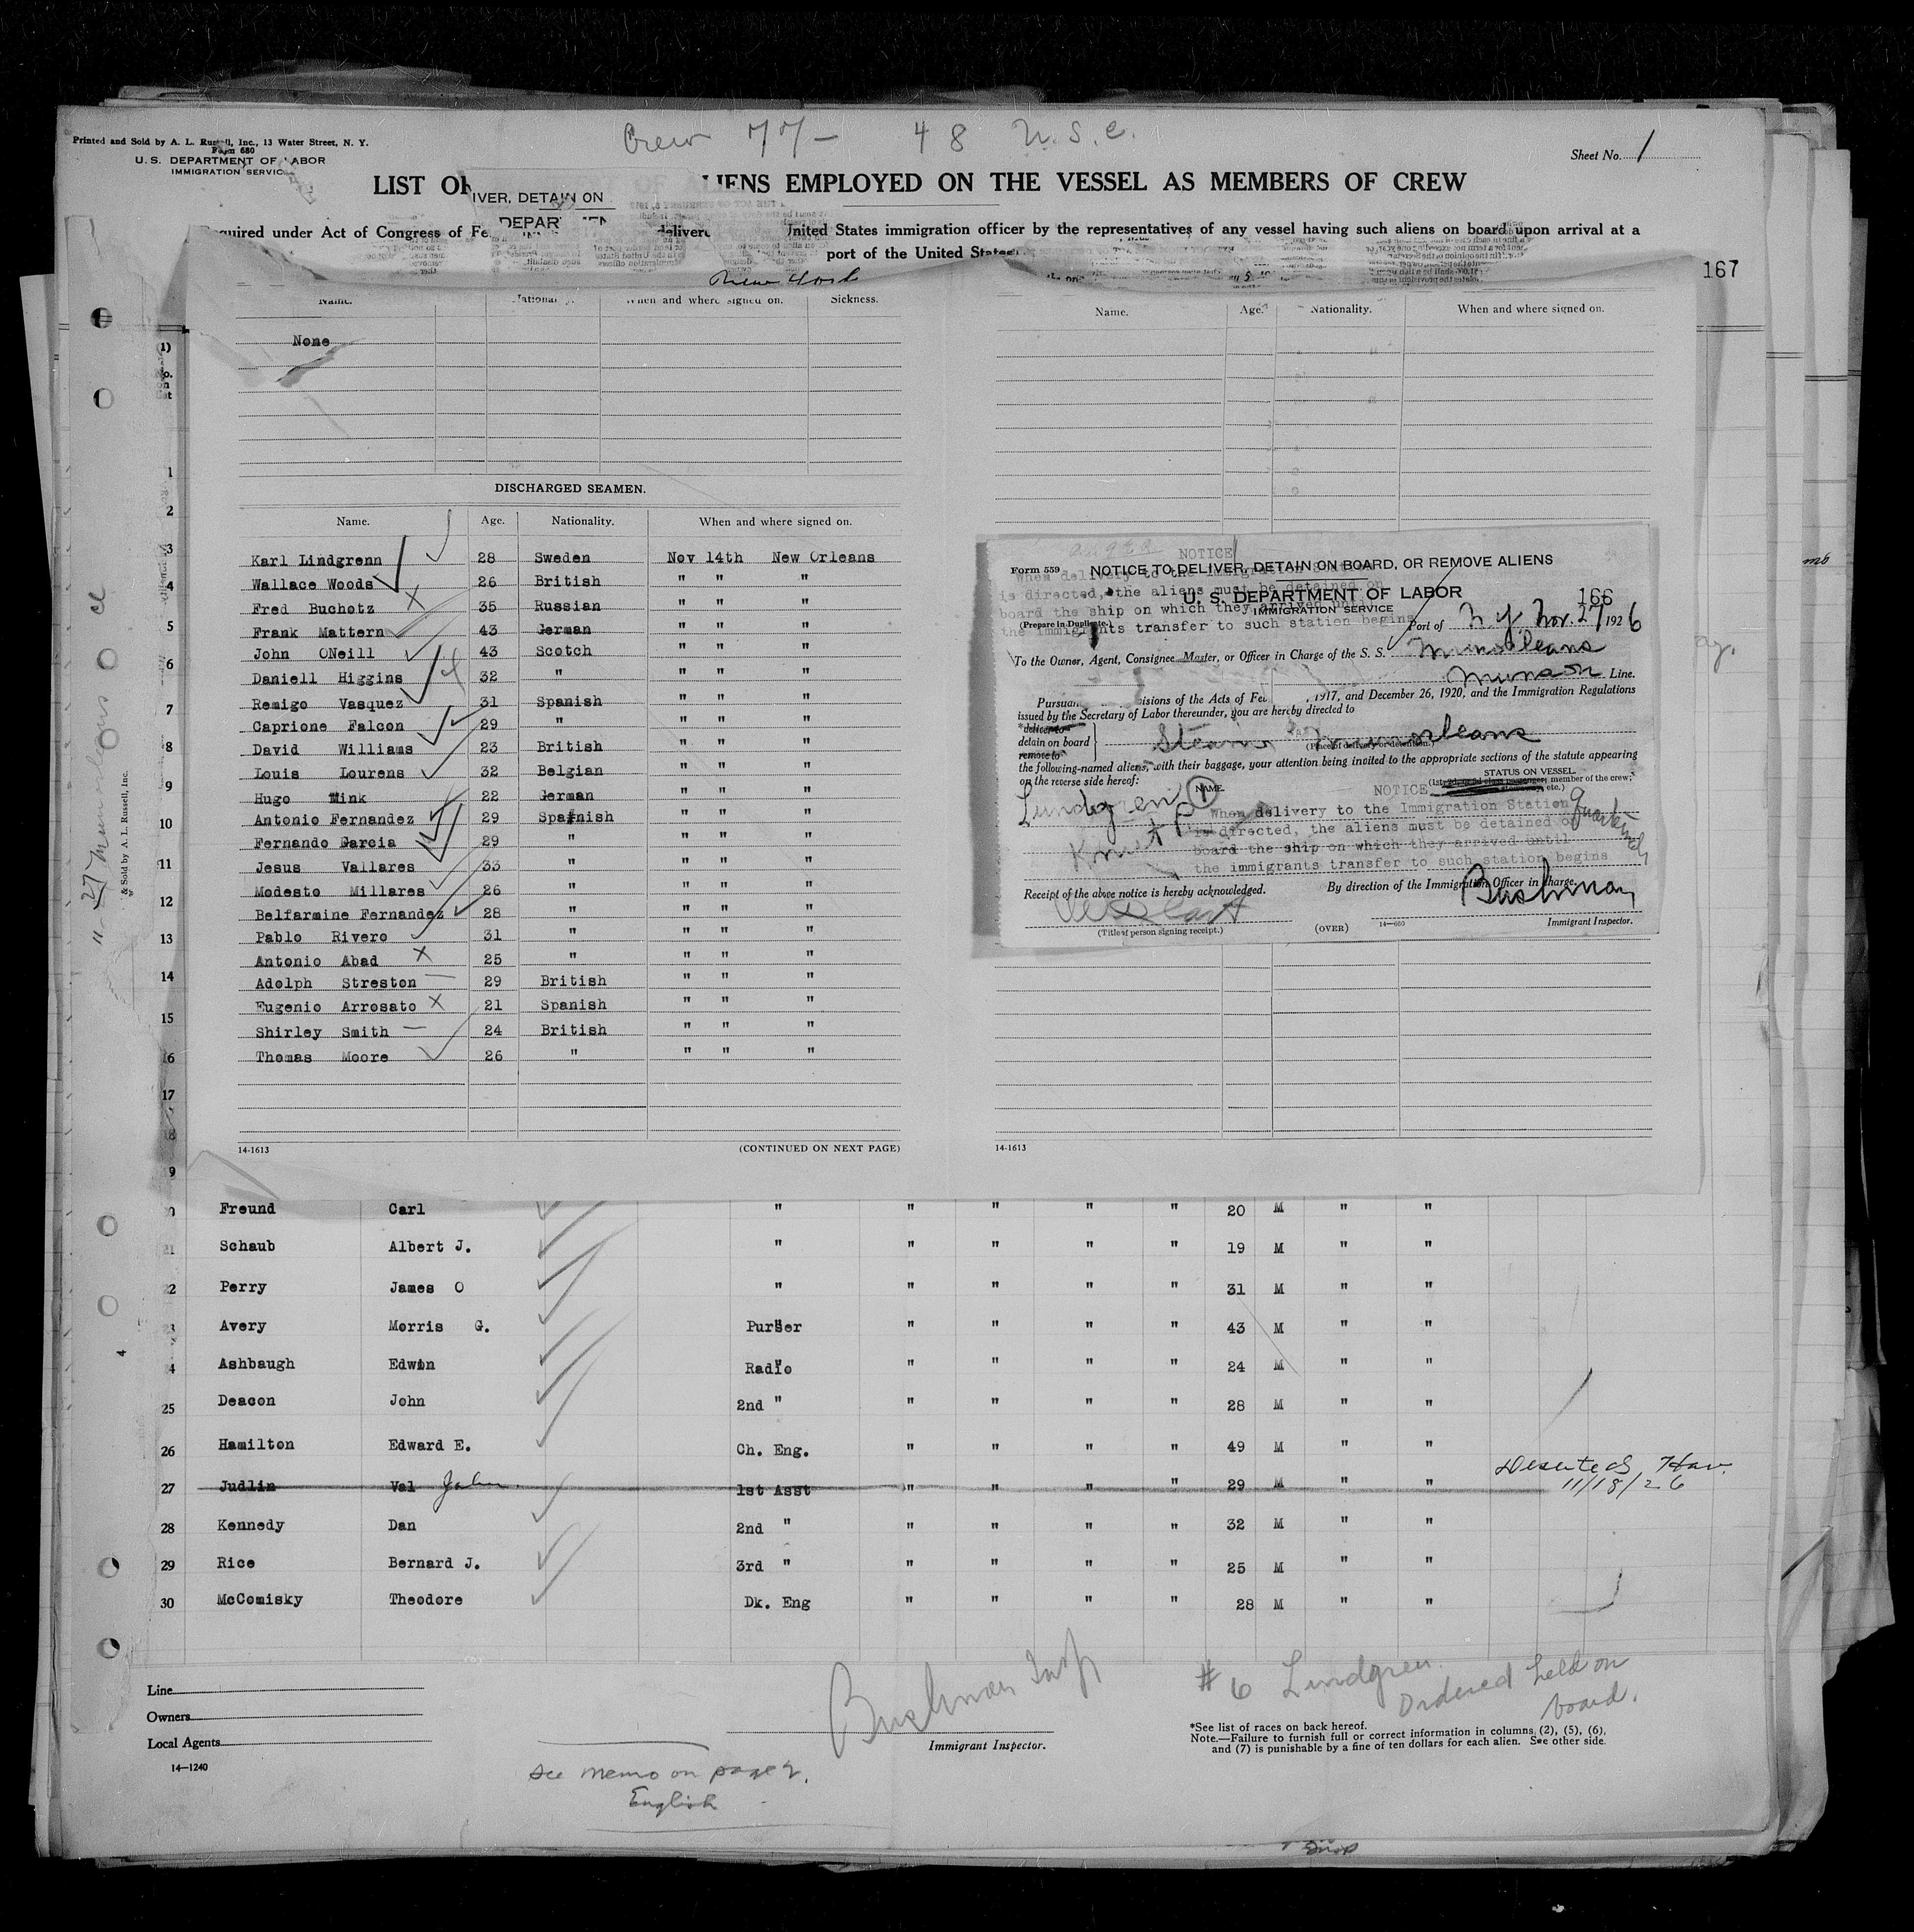 Crew 77- 48 U.S.C.
Printed and Sold by A. L. Russell, Inc., 13 Water Street, N. Y.
Form 680
U. S. DEPARTMENT OF LABOR
IMMIGRATION SERVICE
Sheet No. 1
LIST OF ALIENS EMPLOYED ON THE VESSEL AS MEMBERS OF CREW
IVER, DETAIN ON
DEPAR
quired under Act of Congress of Fe delivere United States immigration officer by the representatives of any vessel having such aliens on board upon arrival at a
port of the United States
New York
167
Name. Nationality. When and where signed on. Sickness.
None
DISCHARGED SEAMEN.
Name. Age. Nationality. When and where signed on.
Karl Lindgrenn 28 Sweden Nov 14th New Orleans
Wallace Woods 26 British " " "
Fred Buchotz 35 Russian " " "
Frank Mattern 43 German " " "
John ONeill 43 Scotch " " "
Daniell Higgins 32 " " " "
Remigo Vasquez 31 Spanish " " "
Caprione Falcon 29 " " " "
David Williams 23 British " " "
Louis Lourens 32 Belgian " " "
Hugo Wink 22 German " " "
Antonio Fernandez 29 Spanish " " "
Fernando Garcia 29 " " " "
Jesus Vallares 33 " " " "
Modesto Millares 26 " " " "
Belfarmine Fernandez 28 " " " "
Pablo Rivero 31 " " " "
Antonio Abad 25 " " " "
Adolph Streston 29 British " " "
Eugenio Arrosato 21 Spanish " " "
Shirley Smith 24 British " " "
Thomas Moore 26 " " " "
14-1613 (CONTINUED ON NEXT PAGE)
Name. Age. Nationality. When and where signed on.
NOTICE
When delivery to the Immigration Station
is directed, the aliens must be detained on
board the ship on which they arrived until
the immigrants transfer to such station begins
Form 559
NOTICE TO DELIVER, DETAIN ON BOARD, OR REMOVE ALIENS
U. S. DEPARTMENT OF LABOR
IMMIGRATION SERVICE
166
(Prepare in Duplicate.)
Port of N Y Nov. 27, 1926
To the Owner, Agent, Consignee, Master, or Officer in Charge of the S. S. Munorleans
Munson Line.
Pursuan isions of the Acts of Fe 1917, and December 26, 1920, and the Immigration Regulations
issued by the Secretary of Labor thereunder, you are hereby directed to
*deliver to
detain on board
remove to
Steam Munorleans
(Place of delivery or detention.)
the following-named aliens, with their baggage, your attention being invited to the appropriate sections of the statute appearing
on the reverse side hereof:
STATUS ON VESSEL
NAME.
Lundgren 1
NOTICE
When delivery to the Immigration Station
is directed, the aliens must be detained on
board the ship on which they arrived until
the immigrants transfer to such station begins
Receipt of the above notice is hereby acknowledged.
By direction of the Immigration Officer in Charge,
Bushman
(Title of person signing receipt.) (OVER) 14-660 Immigrant Inspector.
14-1613
Freund Carl " " " " " 20 M " "
21 Schaub Albert J. " " " " " 19 M " "
22 Perry James O " " " " " 31 M " "
23 Avery Morris G. Purser " " " " 43 M " "
24 Ashbaugh Edwin Radio " " " " 24 M " "
25 Deacon John 2nd " " " " " 28 M " "
26 Hamilton Edward E. Ch. Eng. " " " " 49 M " "
27 Judlin Val John. 1st Asst " " " " 29 M " " Deserted Hav. 11/18/26
28 Kennedy Dan 2nd " " " " " 32 M " "
29 Rice Bernard J. 3rd " " " " " 25 M " "
30 McComisky Theodore Dk. Eng " " " " 28 M " "
Line
Owners
Local Agents
14-1240
Bushman Insp
Immigrant Inspector.
#6 Lindgren.
Ordered held on
board.
*See list of races on back hereof.
Note.—Failure to furnish full or correct information in columns (2), (5), (6),
and (7) is punishable by a fine of ten dollars for each alien. See other side.
See memo on page 2.
English
& Sold by A. L. Russell, Inc.